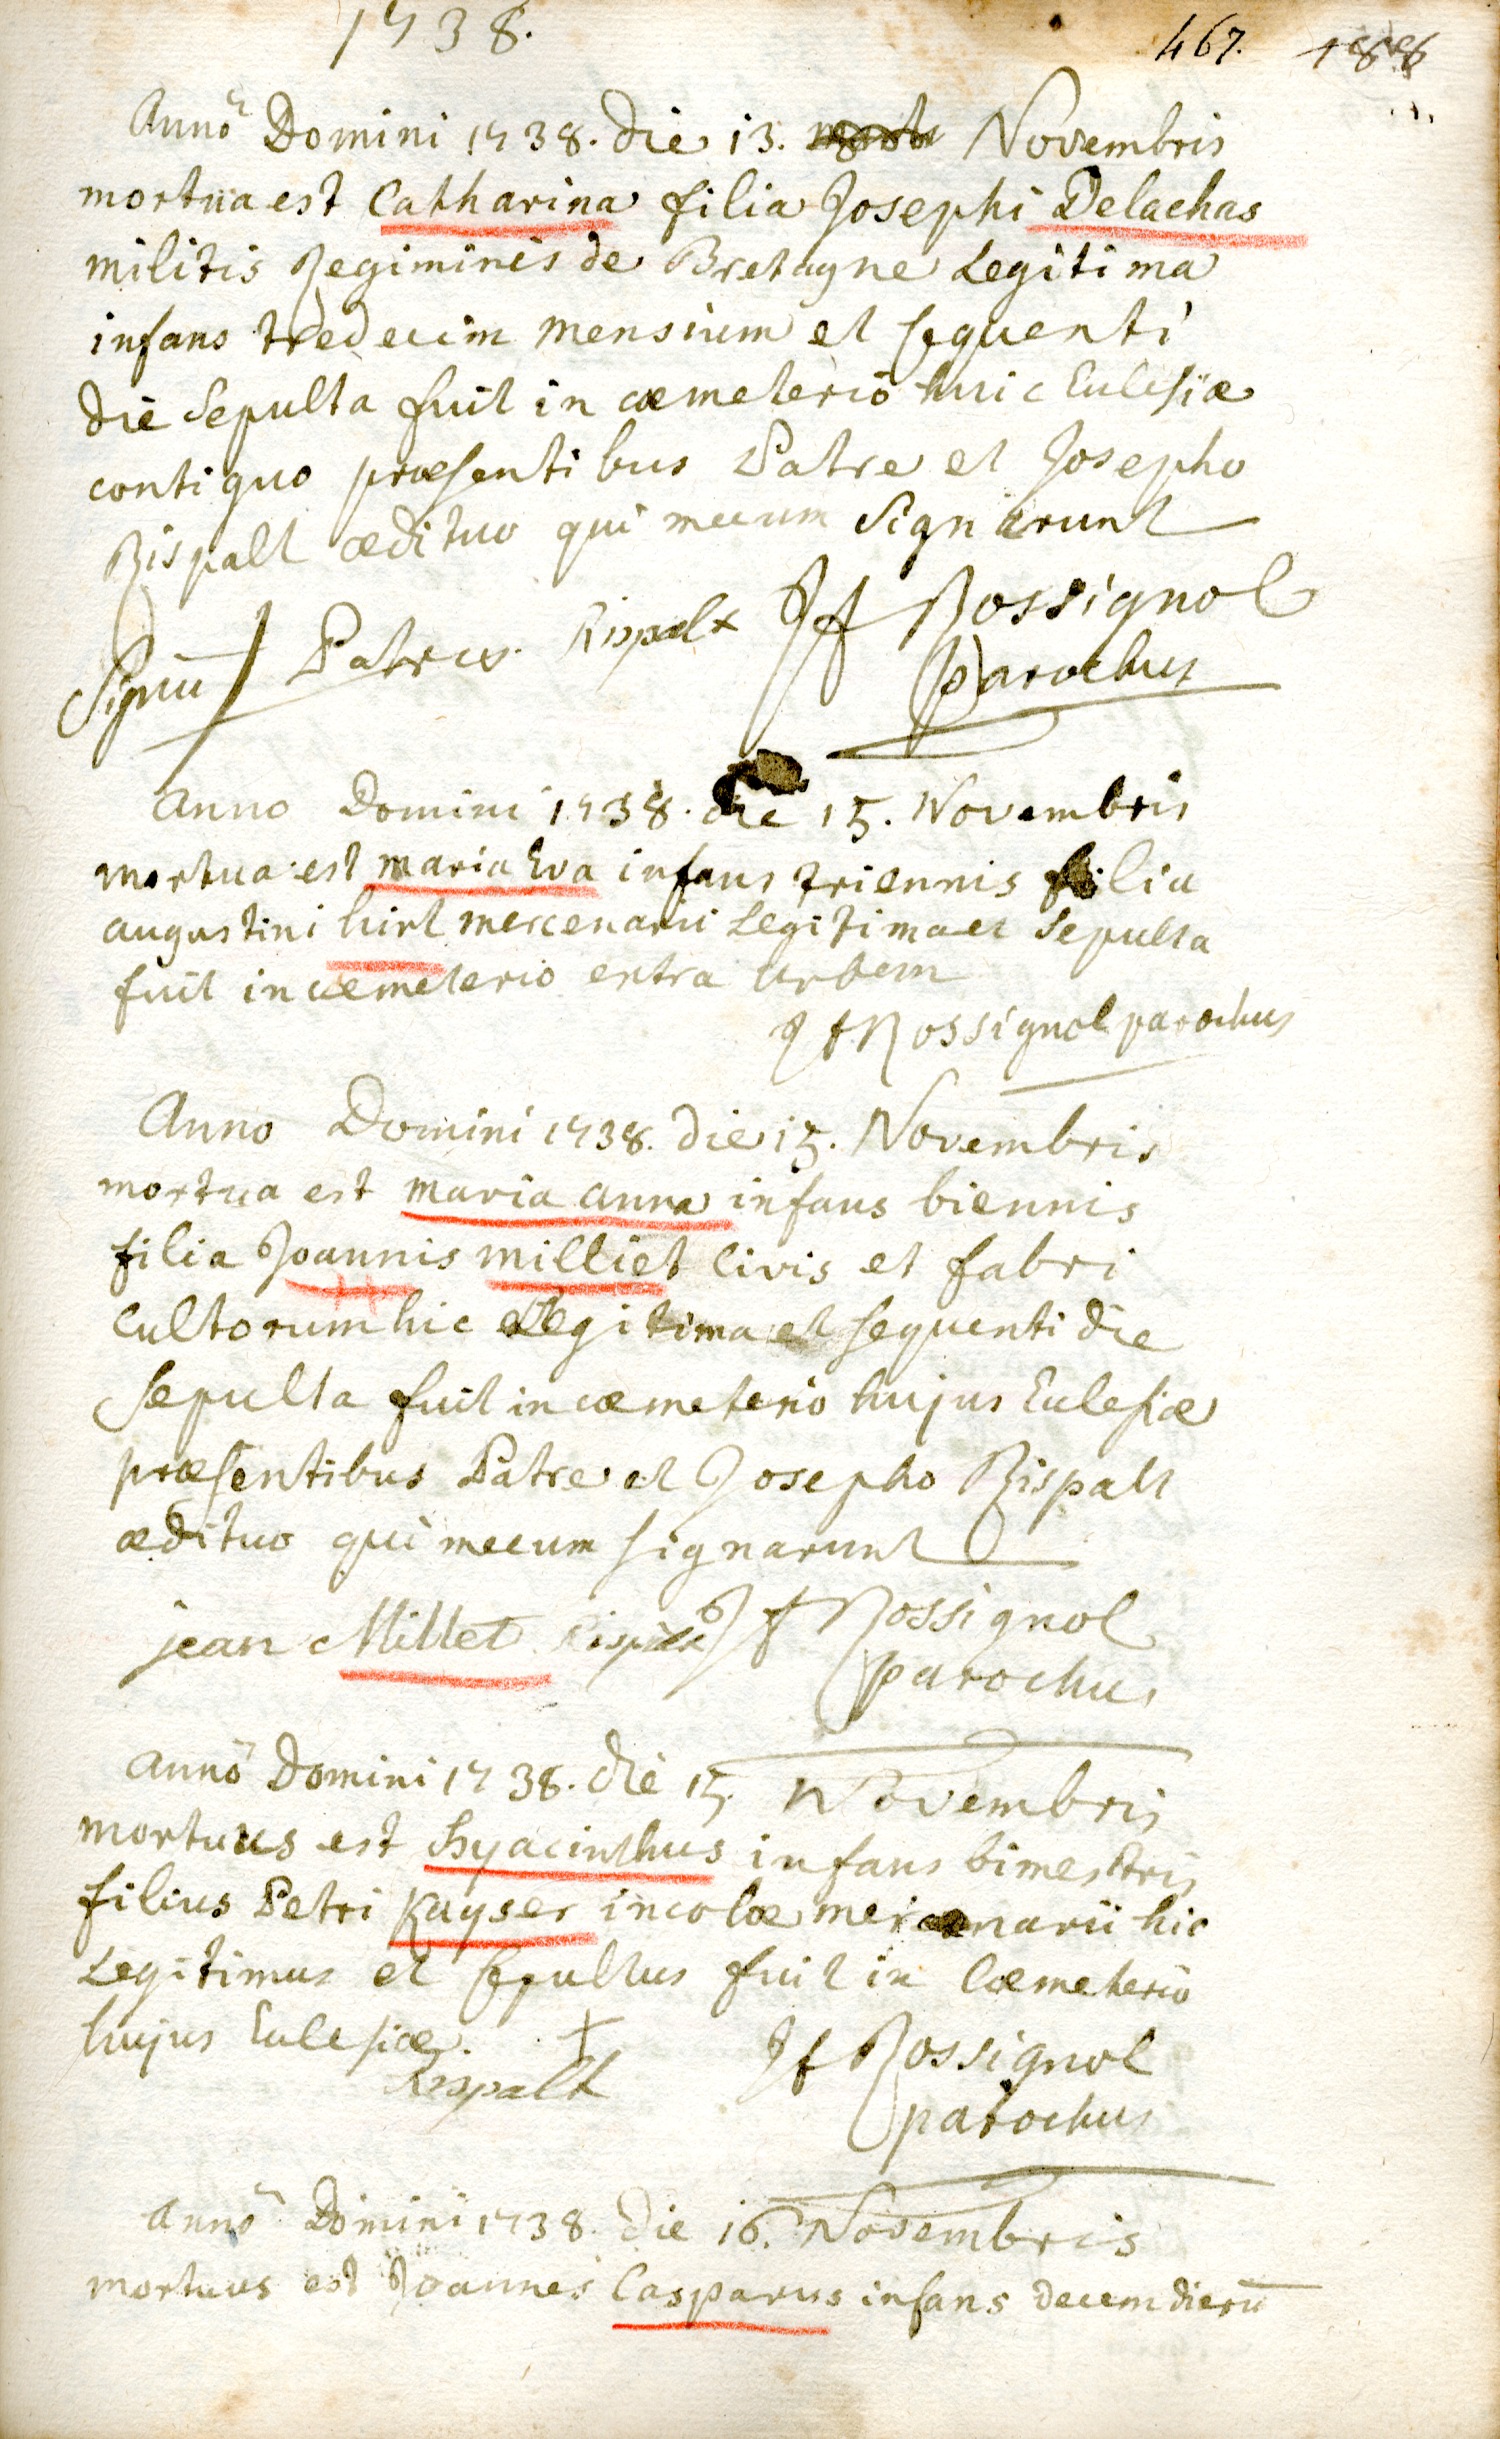 1738.
467. 188
Anno Domini 1738. die 13. Novembris
mortua est Catharina filia Josephi Delachas
militis Regiminis de Bretagne Legitima
infans tredecim mensium et sequenti
die Sepulta fuit in cœmeterio huic Ecclesiæ
contiguo præsentibus Patre et Josepho
Rispalt ædituo qui mecum Signarunt
Signū Patris. Rispalt JF Rossignol
parochus
Anno Domini 1738. die 15. Novembris
mortua est maria Eva infans triennis filia
augustini hirt mercenarii Legitima et Sepulta
fuit in cœmeterio extra urbem
JF Rossignol parochus
Anno Domini 1738. die 15. Novembris
mortua est maria anna infans biennis
filia Joannis milliet Civis et fabri
Cultorum hic Legitima et sequenti die
sepulta fuit in cœmeterio hujus Ecclesiæ
præsentibus Patre et Josepho Rispalt
ædituo qui mecum signarunt
jean Millet Rispalt JF Rossignol
parochus
Anno Domini 1738. die 15. Novembris
mortuus est hyacinthus infans bimestris
filius Petri Kayser incolæ mercenarii hic
Legitimus et sepultus fuit in Cœmeterio
hujus Ecclesiæ.
Rispalt JF Rossignol
parochus
Anno Domini 1738. die 16. Novembris
mortuus est Joannes Casparus infans decem dierū